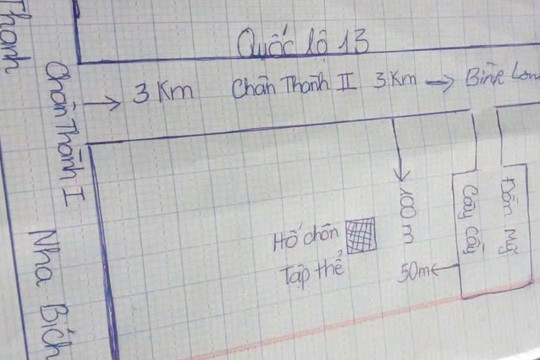 Quốc lộ 13
3 Km Chân Thành II 3 Km → Bình Lon
Thanh
Chân Thành I
Nha Bích
100 m
Hố chôn
Tập thể
50m
Cây Cầy
Đồn Mỹ